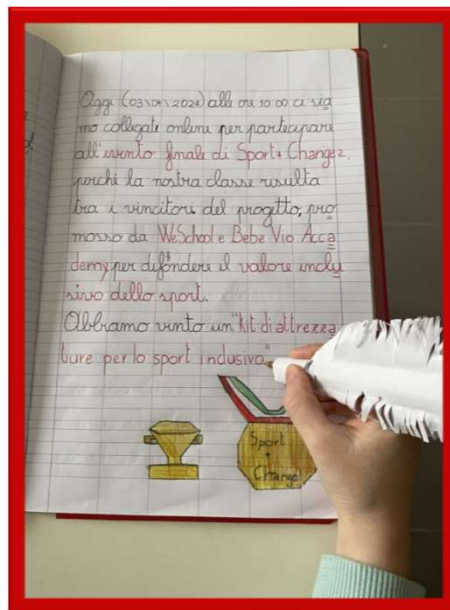 Oggi (03\04\2024) alle ore 10:00 ci sia
mo collegati online per partecipare
all'evento finale di Sport+Change2,
perché la nostra classe risulta
tra i vincitori del progetto, pro
mosso da WeSchool e Bebe Vio Acca
demy per difondere il valore inclu
sivo dello sport.
Abbiamo vinto un "kit di attrezza
ture per lo sport inclusivo"
Sport
+
Change